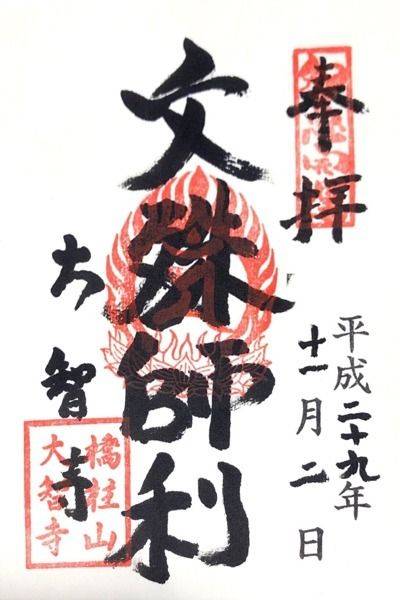 奉拝
平成二十九年
十一月二日
文殊師利
大智寺
橋柱山
大智寺